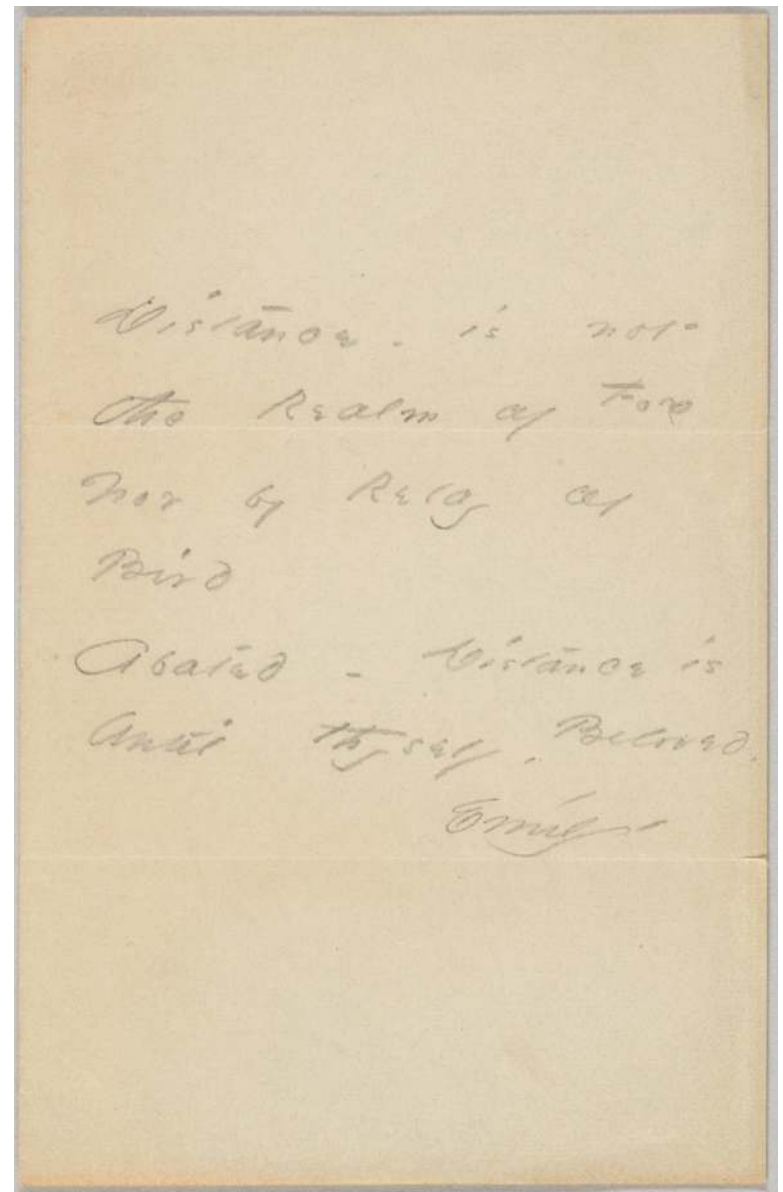 Distance - is not
the Realm of Fox
Nor by Relay of
Bird
Abated - Distance is
Until thyself, Beloved.
Emily -